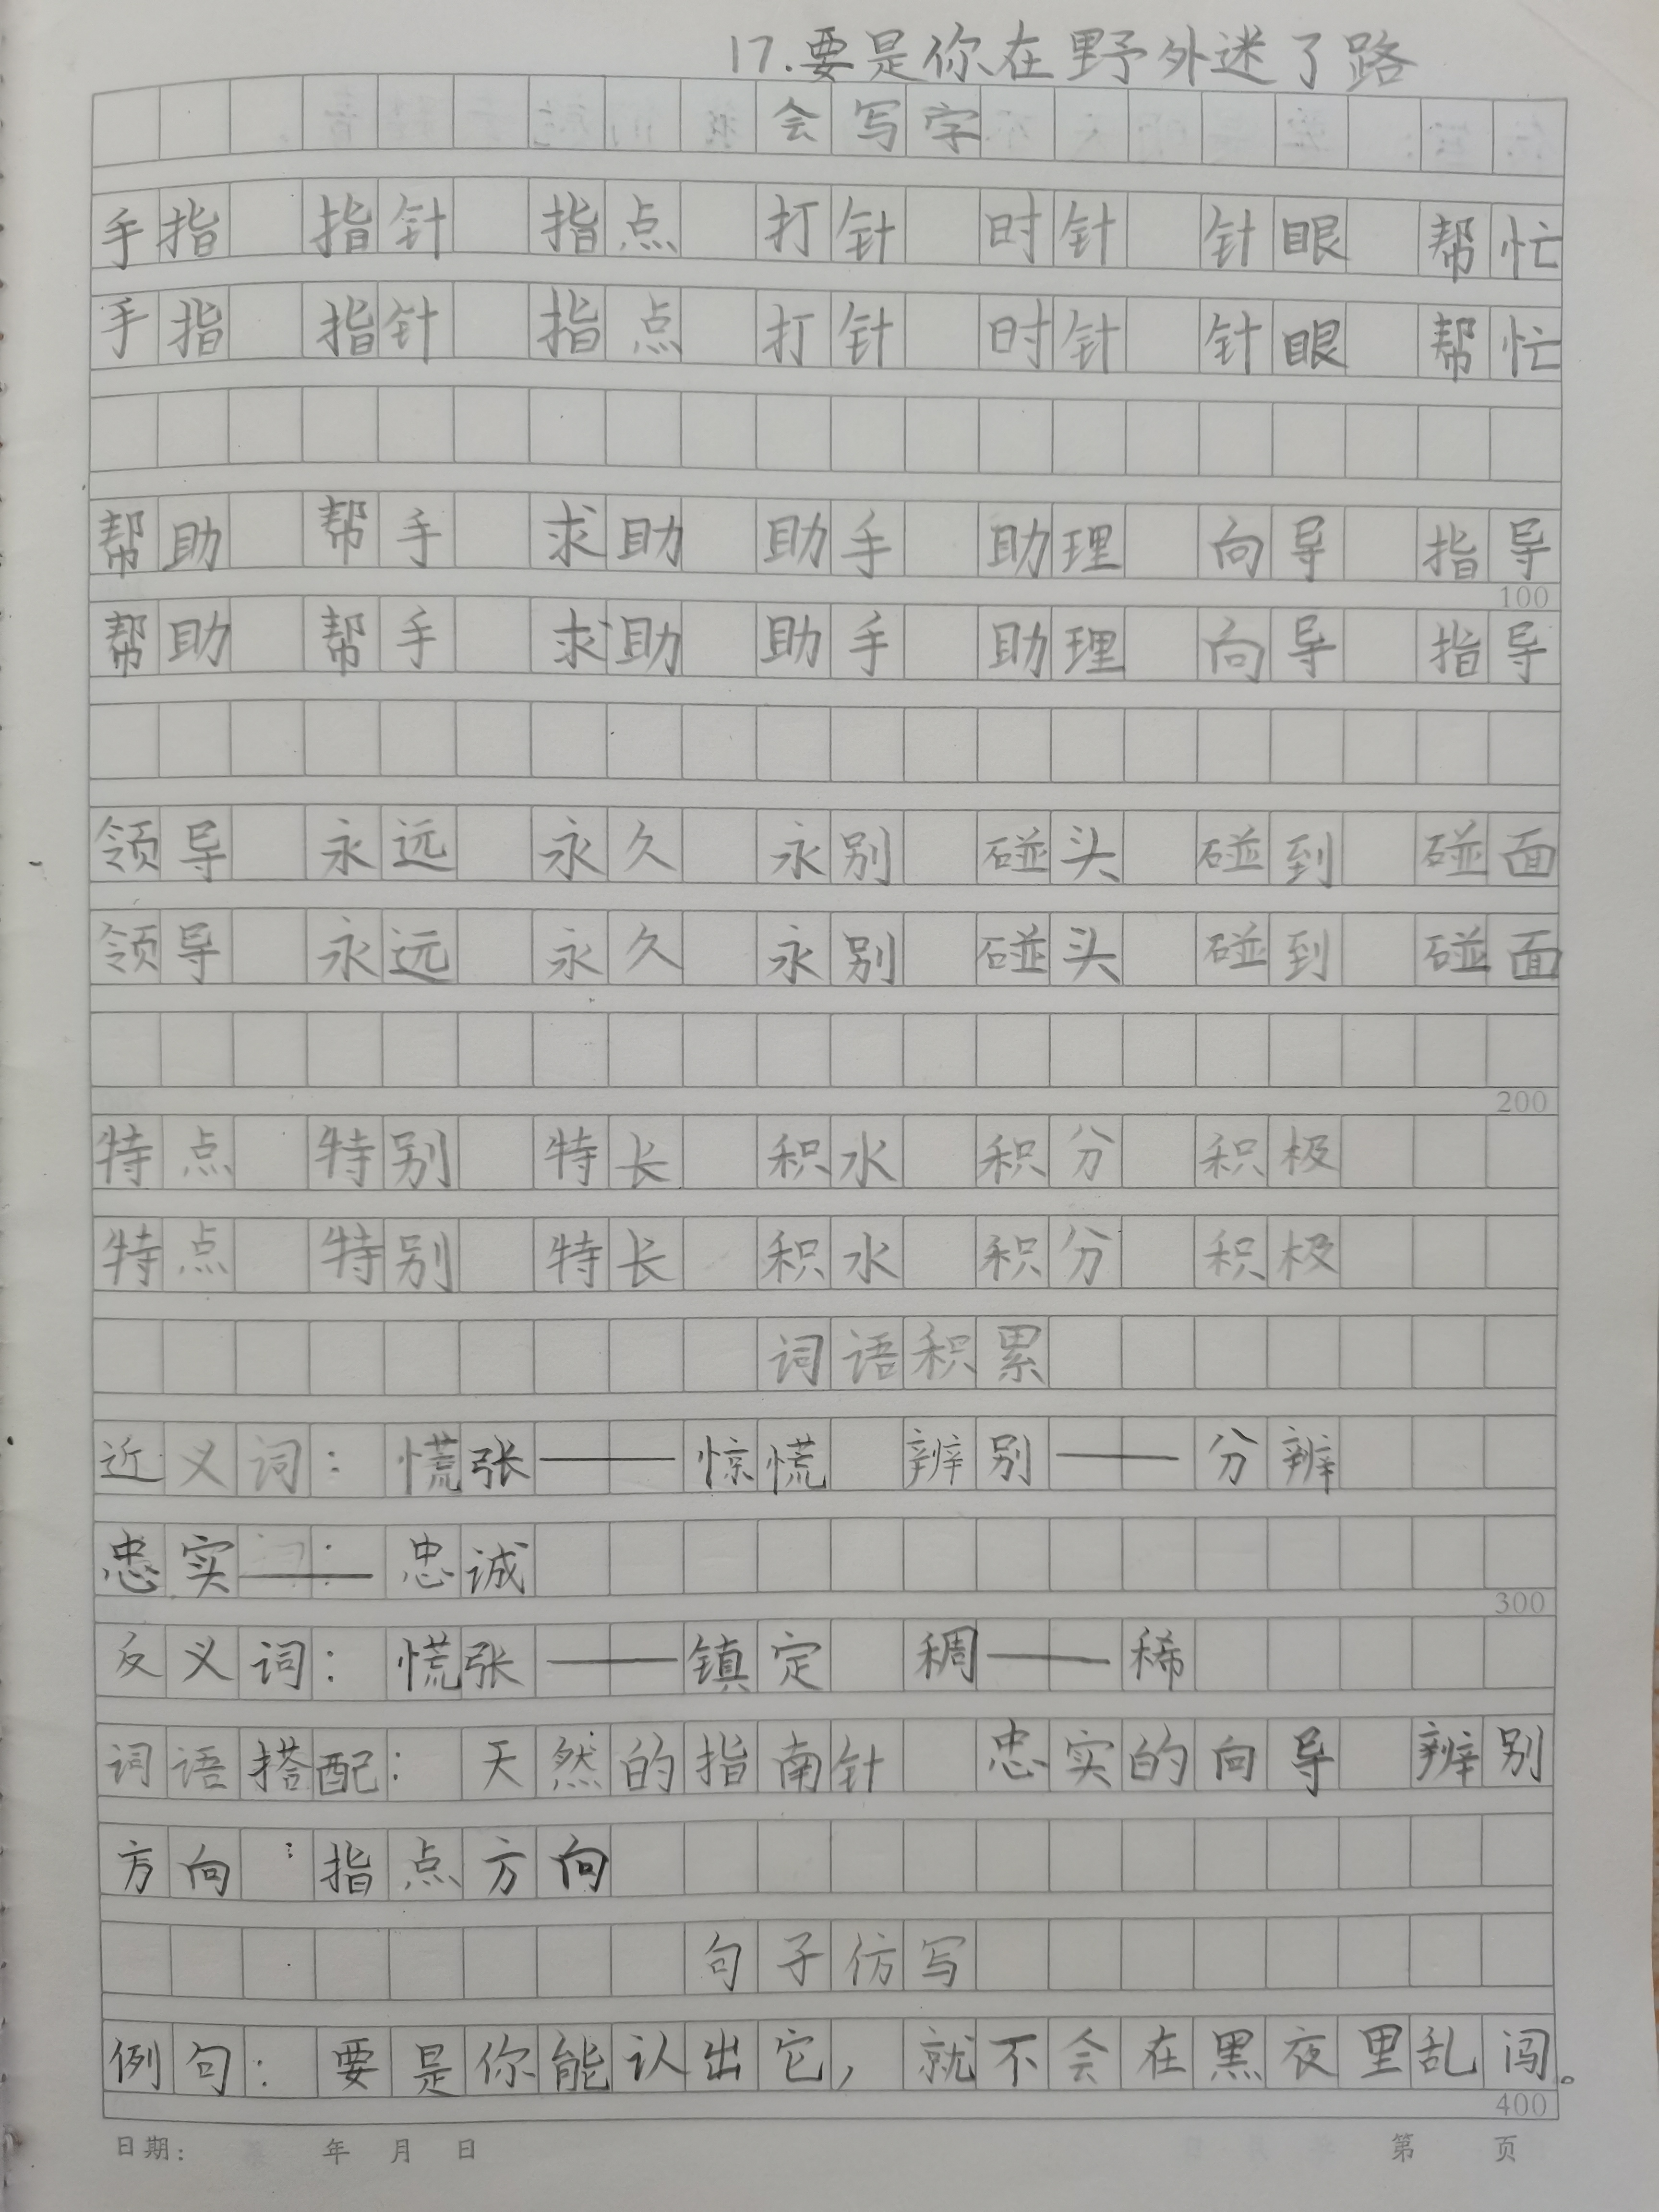 17.要是你在野外迷了路
会写字
手指 指针 指点 打针 时针 针眼 帮忙
手指 指针 指点 打针 时针 针眼 帮忙
帮助 帮手 求助 助手 助理 向导 指导
100
帮助 帮手 求助 助手 助理 向导 指导
领导 永远 永久 永别 碰头 碰到 碰面
领导 永远 永久 永别 碰头 碰到 碰面
200
特点 特别 特长 积水 积分 积极
特点 特别 特长 积水 积分 积极
词语积累
近义词：慌张——惊慌 辨别——分辨
忠实——忠诚
300
反义词：慌张——镇定 稠——稀
词语搭配：天然的指南针 忠实的向导 辨别
方向 指点方向
句子仿写
例句：要是你能认出它，就不会在黑夜里乱闯。
400
日期： 年 月 日 第 页